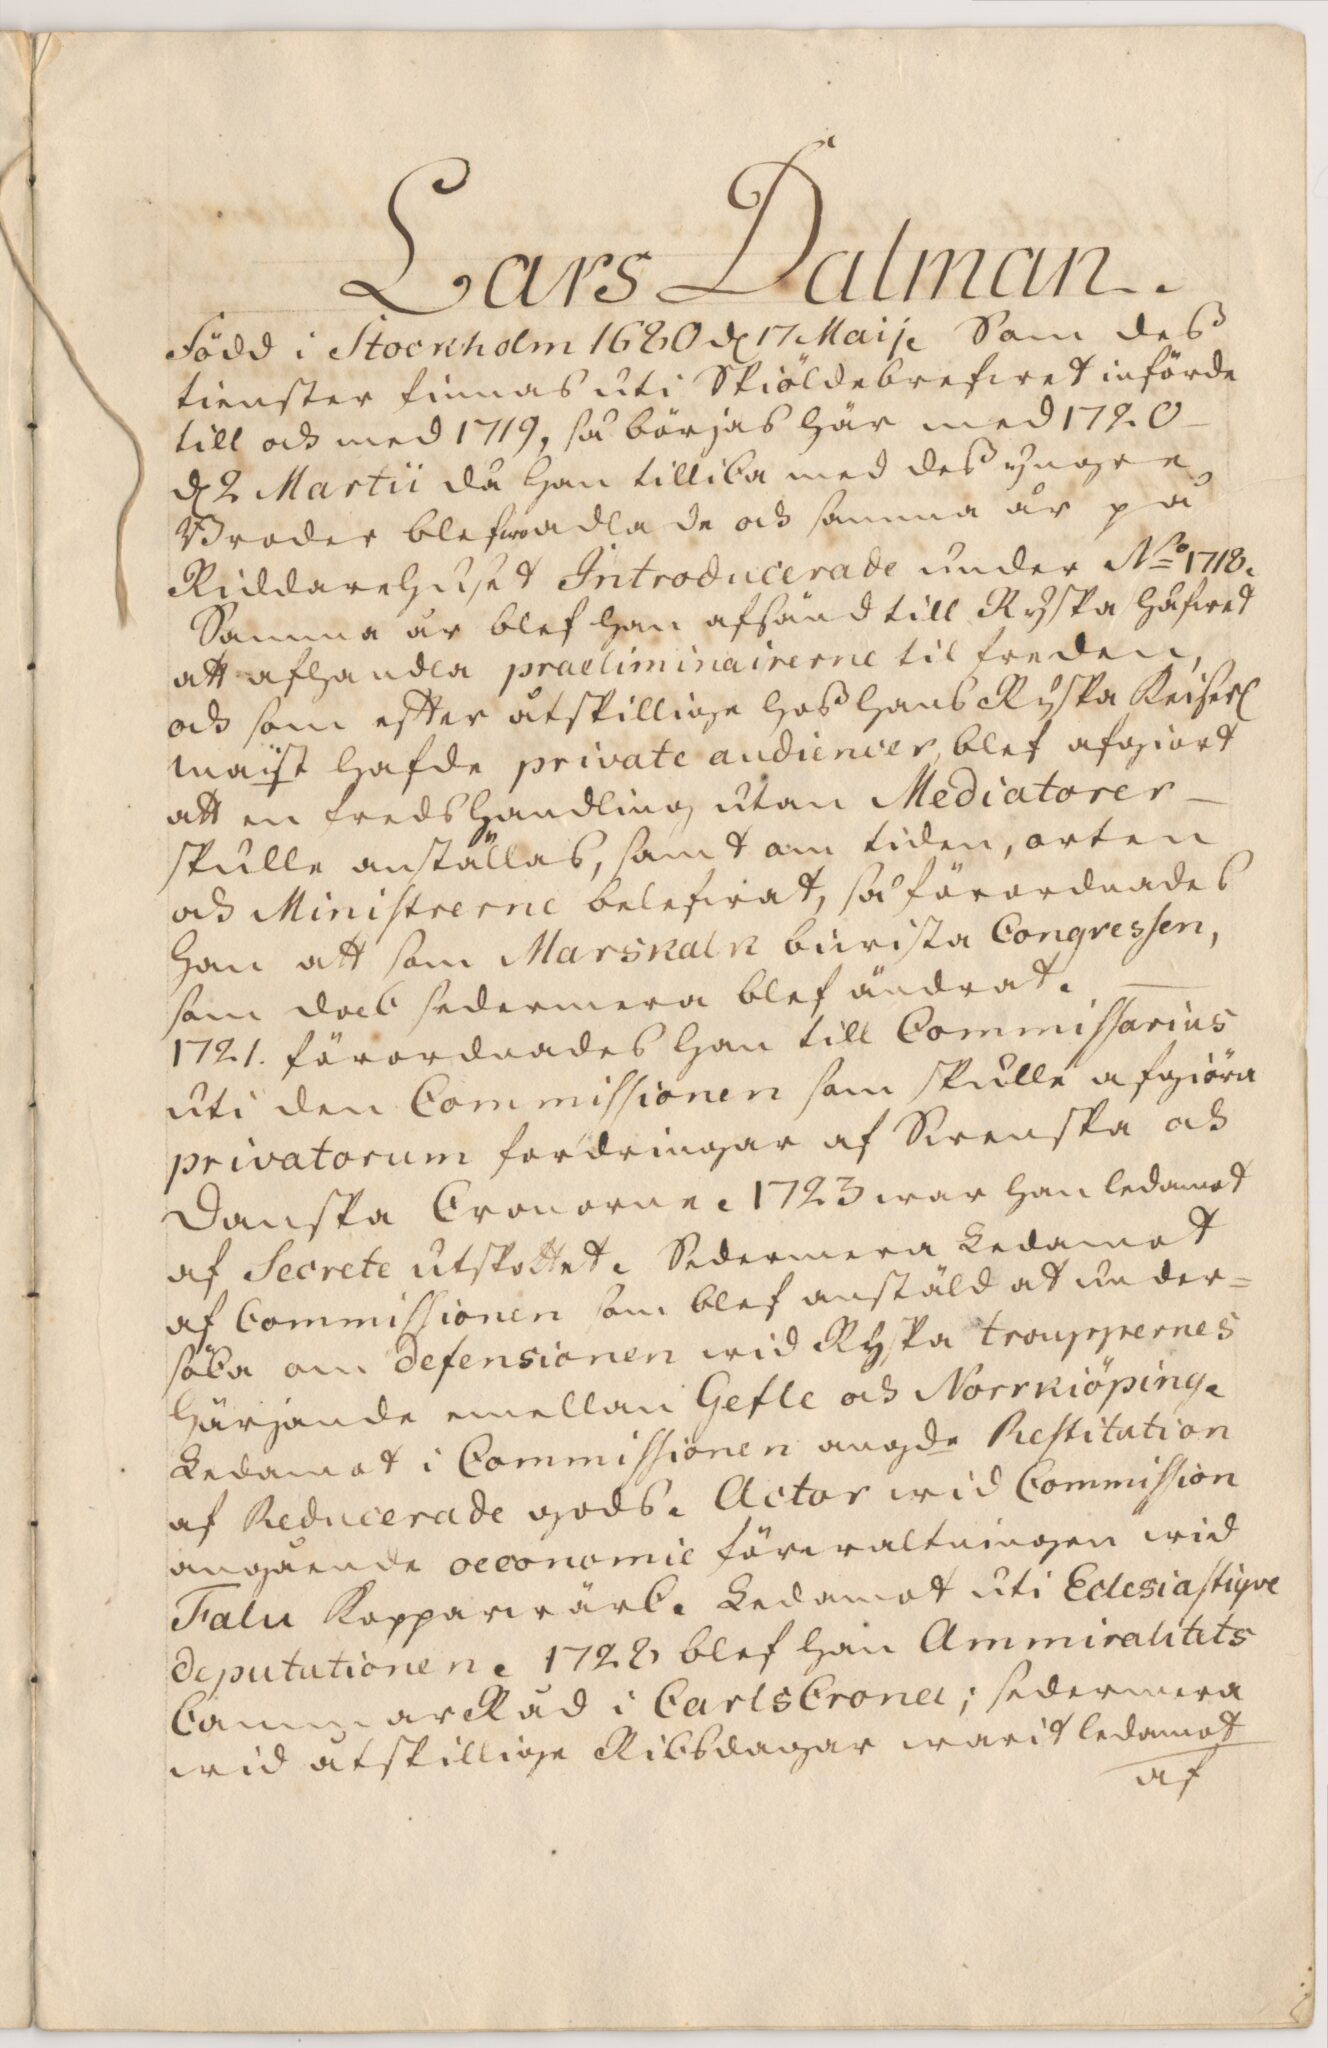 Lars Dalman.
Född i Stockholm 1680 d 17 Maij. Som deß
tienster finnas uti Skiöldebrefwet införde
till och med 1719, så börjas här med 1720
d 2 Martii då han tillika med deß yngre
Broder blefwo adlade och samma år på
Riddarehuset Introducerade under No 1718.
Samma år blef han afsänd till Ryska håfwet
att afhandla praeliminairerne til freden,
och som efter åtskillige hoß hans Ryska Keiserl
maijst hafde private audiencer, blef afgiort
att en fredshandling utan Mediatorer
skulle anställas, samt om tiden, orten
och Ministrerne belefwat, så förordnades
han att som Marskalk biwista Congressen,
som doch sedermera blef ändrat.
1721. förordnades han till Commissarius
uti den Commissionen som skulle afgiöra
privatorum fordringar af Swenska och
Danska Cronorne. 1723 war han ledamot
af Secrete utskottet. Sedermera Ledamot
af Commissionen som blef anstäld at under=
söka om defensionen wid Ryska trouppernes
härjande emellan Gefle och Norrkiöping.
Ledamot i Commissionen angde Restitution
af Reducerade gods. Actor wid Commission
angående oeconomie förwaltningen wid
Falu Kopparwärk. Ledamot uti Eclesiastiqve
deputationen. 1728 blef han Ammiralitets
Cammar Råd i CarlsCrona; sedermera
wid åtskillige Riksdagar warit ledamot
af